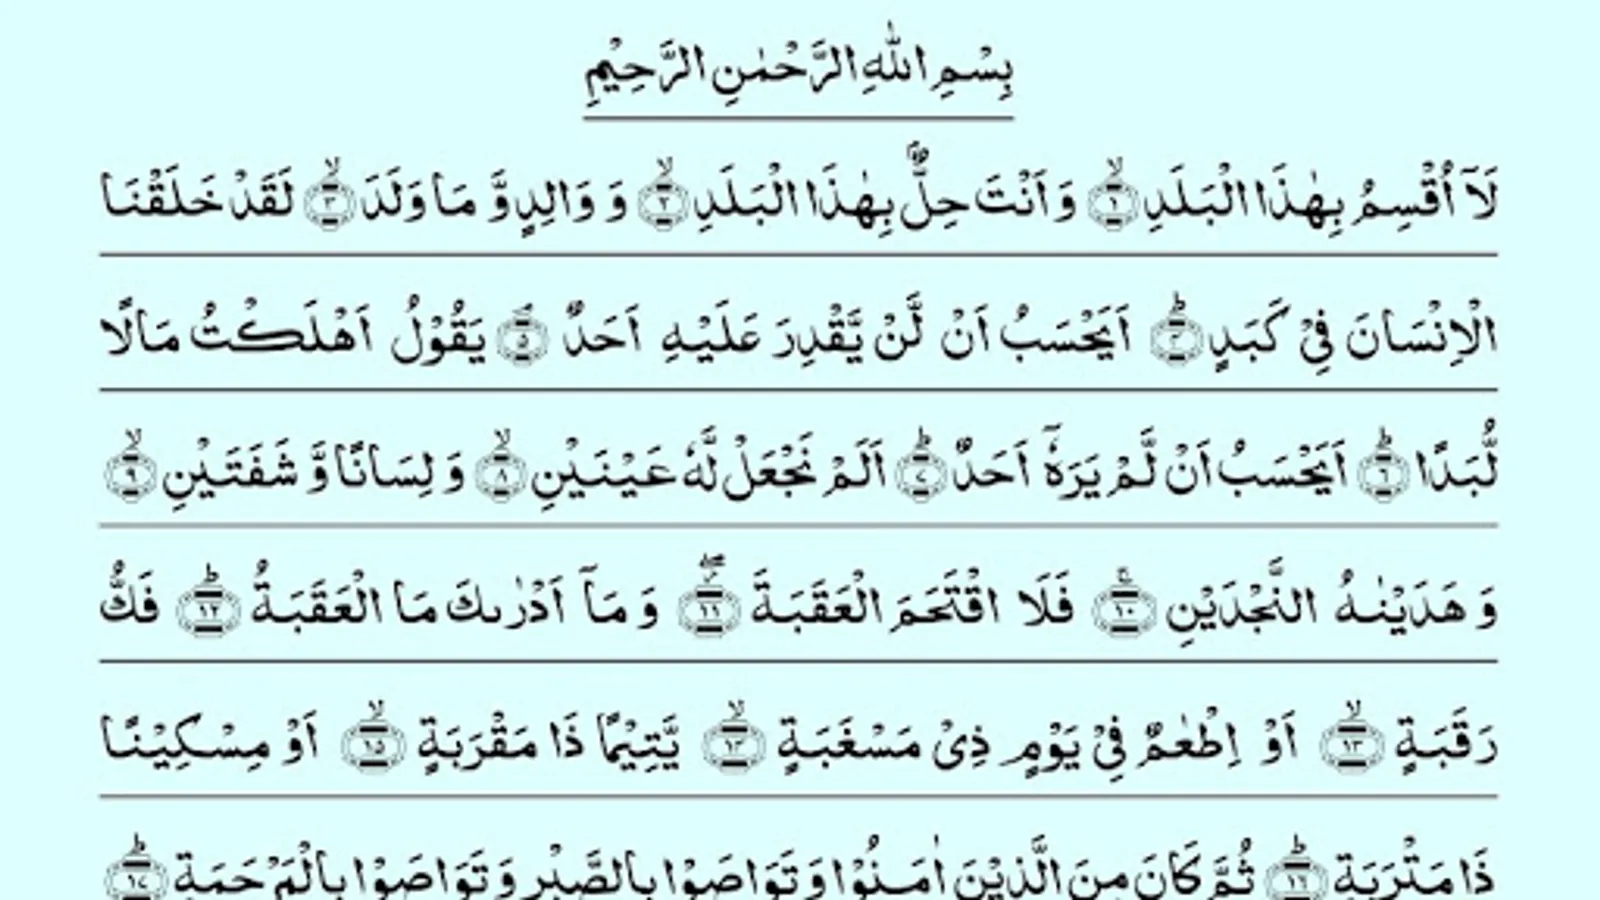 بِسْمِ اللّٰهِ الرَّحْمٰنِ الرَّحِيْمِ
لَآ اُقْسِمُ بِهٰذَا الْبَلَدِ ۙ﴿۱﴾ وَ اَنْتَ حِلٌّۢ بِهٰذَا الْبَلَدِ ۙ﴿۲﴾ وَ وَالِدٍ وَّ مَا وَلَدَ ۙ﴿۳﴾ لَقَدْ خَلَقْنَا
الْاِنْسَانَ فِیْ كَبَدٍ ؕ﴿۴﴾ اَیَحْسَبُ اَنْ لَّنْ یَّقْدِرَ عَلَیْهِ اَحَدٌ ۘ﴿۵﴾ یَقُوْلُ اَهْلَكْتُ مَالًا
لُّبَدًا ؕ﴿۶﴾ اَیَحْسَبُ اَنْ لَّمْ یَرَهٗۤ اَحَدٌ ؕ﴿۷﴾ اَلَمْ نَجْعَلْ لَّهٗ عَیْنَیْنِ ۙ﴿۸﴾ وَ لِسَانًا وَّ شَفَتَیْنِ ۙ﴿۹﴾
وَ هَدَیْنٰهُ النَّجْدَیْنِ ۚ﴿۱۰﴾ فَلَا اقْتَحَمَ الْعَقَبَةَ ۖ﴿۱۱﴾ وَ مَاۤ اَدْرٰىكَ مَا الْعَقَبَةُ ؕ﴿۱۲﴾ فَكُّ
رَقَبَةٍ ۙ﴿۱۳﴾ اَوْ اِطْعٰمٌ فِیْ یَوْمٍ ذِیْ مَسْغَبَةٍ ۙ﴿۱۴﴾ یَّتِیْمًا ذَا مَقْرَبَةٍ ۙ﴿۱۵﴾ اَوْ مِسْكِیْنًا
ذَا مَتْرَبَةٍ ؕ﴿۱۶﴾ ثُمَّ كَانَ مِنَ الَّذِیْنَ اٰمَنُوْا وَ تَوَاصَوْا بِالصَّبْرِ وَ تَوَاصَوْا بِالْمَرْحَمَةِ ؕ﴿۱۷﴾